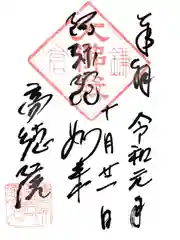 奉拝 令和元年
十月廿一日
阿弥陀如来
高徳院